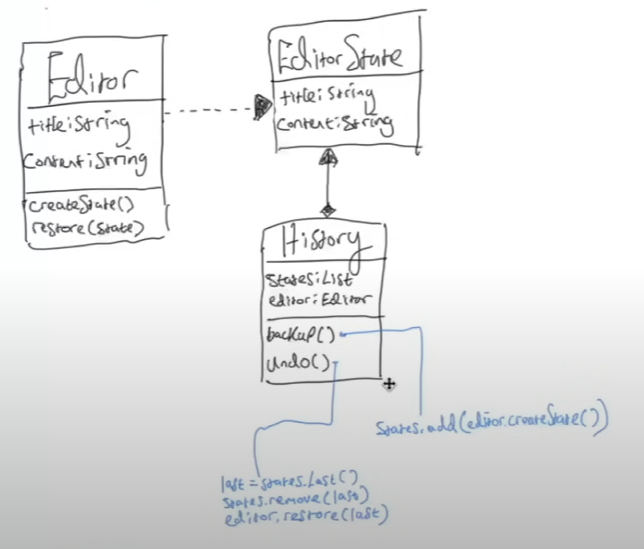 Editor
title:String
Content:String
createState()
restore(state)
Editor State
title:String
Content:String
History
states:List
editor:Editor
backup()
undo()
states.add(editor.createState())
last = states.Last()
states.remove(last)
editor.restore(last)